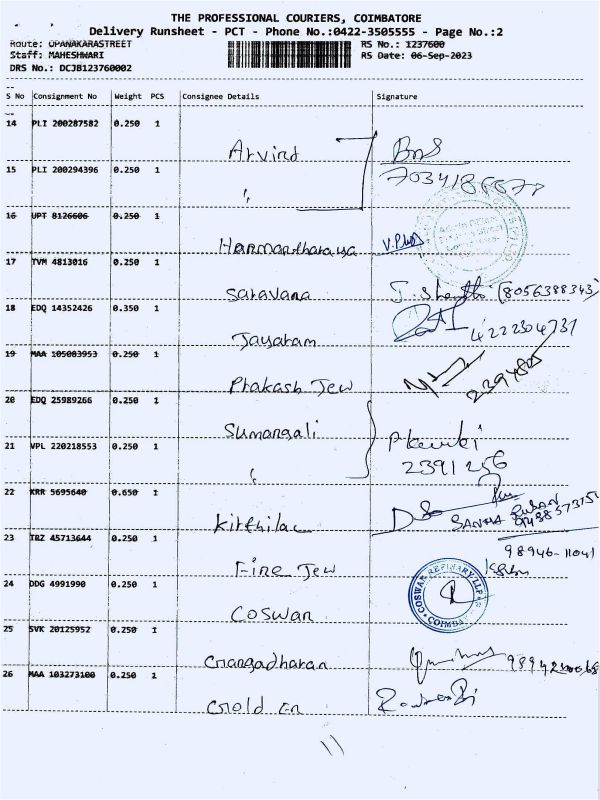 THE PROFESSIONAL COURIERS, COIMBATORE
Delivery Runsheet - PCT - Phone No.:0422-3505555 - Page No.:2
Route: OPANAKARASTREET RS No.: 1237600
Staff: MAHESHWARI RS Date: 06-Sep-2023
DRS No.: DCJB123760002
S No Consignment No Weight PCS Consignee Details Signature
14 PLI 200287582 0.250 1 Arvind
15 PLI 200294396 0.250 1 "
16 UPT 8126606 0.250 1 Hanmantharaya
17 TVM 4813016 0.250 1 Saravana (8056388343)
18 EDQ 14352426 0.350 1 Jayaram 4222304731
19 MAA 105083953 0.250 1 Prakash Jew
20 EDQ 25989266 0.250 1 Sumangali
21 VPL 220218553 0.250 1 " 2391256
22 KRR 5695640 0.650 1
23 TRZ 45713644 0.250 1 Fine Jew 98946-11041
24 DDG 4991990 0.250 1 Coswan COSWAN REFINARY LLP COIMBA
25 SVK 20125952 0.250 1 Gangadharan
26 MAA 103273100 0.250 1 Gold